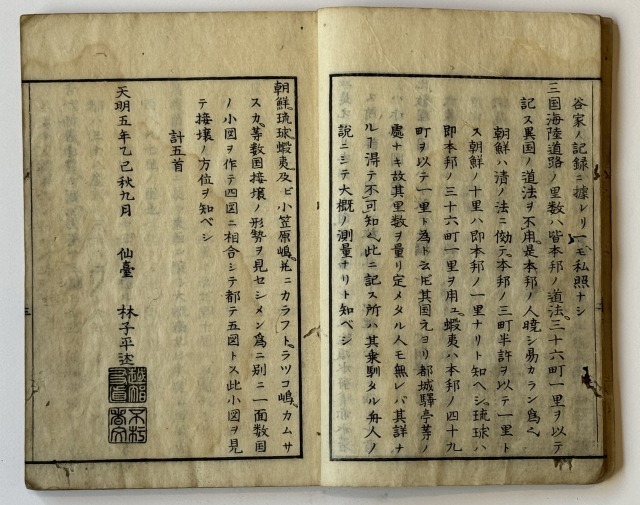 谷家ノ記録ニ據レリ一モ私照ナシ
三国海陸道路ノ里数ハ皆本邦ノ道法三十六町一里ヲ以テ
記ス異国ノ道法ヲ不用是本邦ノ人暁シ易カラン為ヘ
朝鮮ハ清ノ法ニ傚テ本邦ノ三町半許ヲ以テ一里ト
ス朝鮮ノ十里ハ即本邦ノ一里ナリト知ヘシ琉球ハ
即本邦ノ三十六町一里ヲ用ユ蝦夷ハ本邦ノ四十九
町ヲ以テ一里ト為ト云尼其国元ヨリ都城驛亭等ノ
處ナキ故其里数ヲ量リ定メタル人モ無レバ其詳ナ
ルヿ得テ不可知ヘ此ニ記ス所ハ其乗馴タル舟人ノ
説ニシテ大概ノ測量ナリト知ベシ
朝鮮琉球蝦夷及ビ小笠原嶋並ニカラフトラツコ嶋カムサ
スカ等数国接壌ノ形勢ヲ見セシメン為ニ別ニ一面数国
ノ小図ヲ作テ四図ニ相合シテ都テ五図トス此小図ヲ見
テ接壌ノ方位ヲ知ベシ
計五首
天明五年乙巳秋九月 仙臺 林子平述